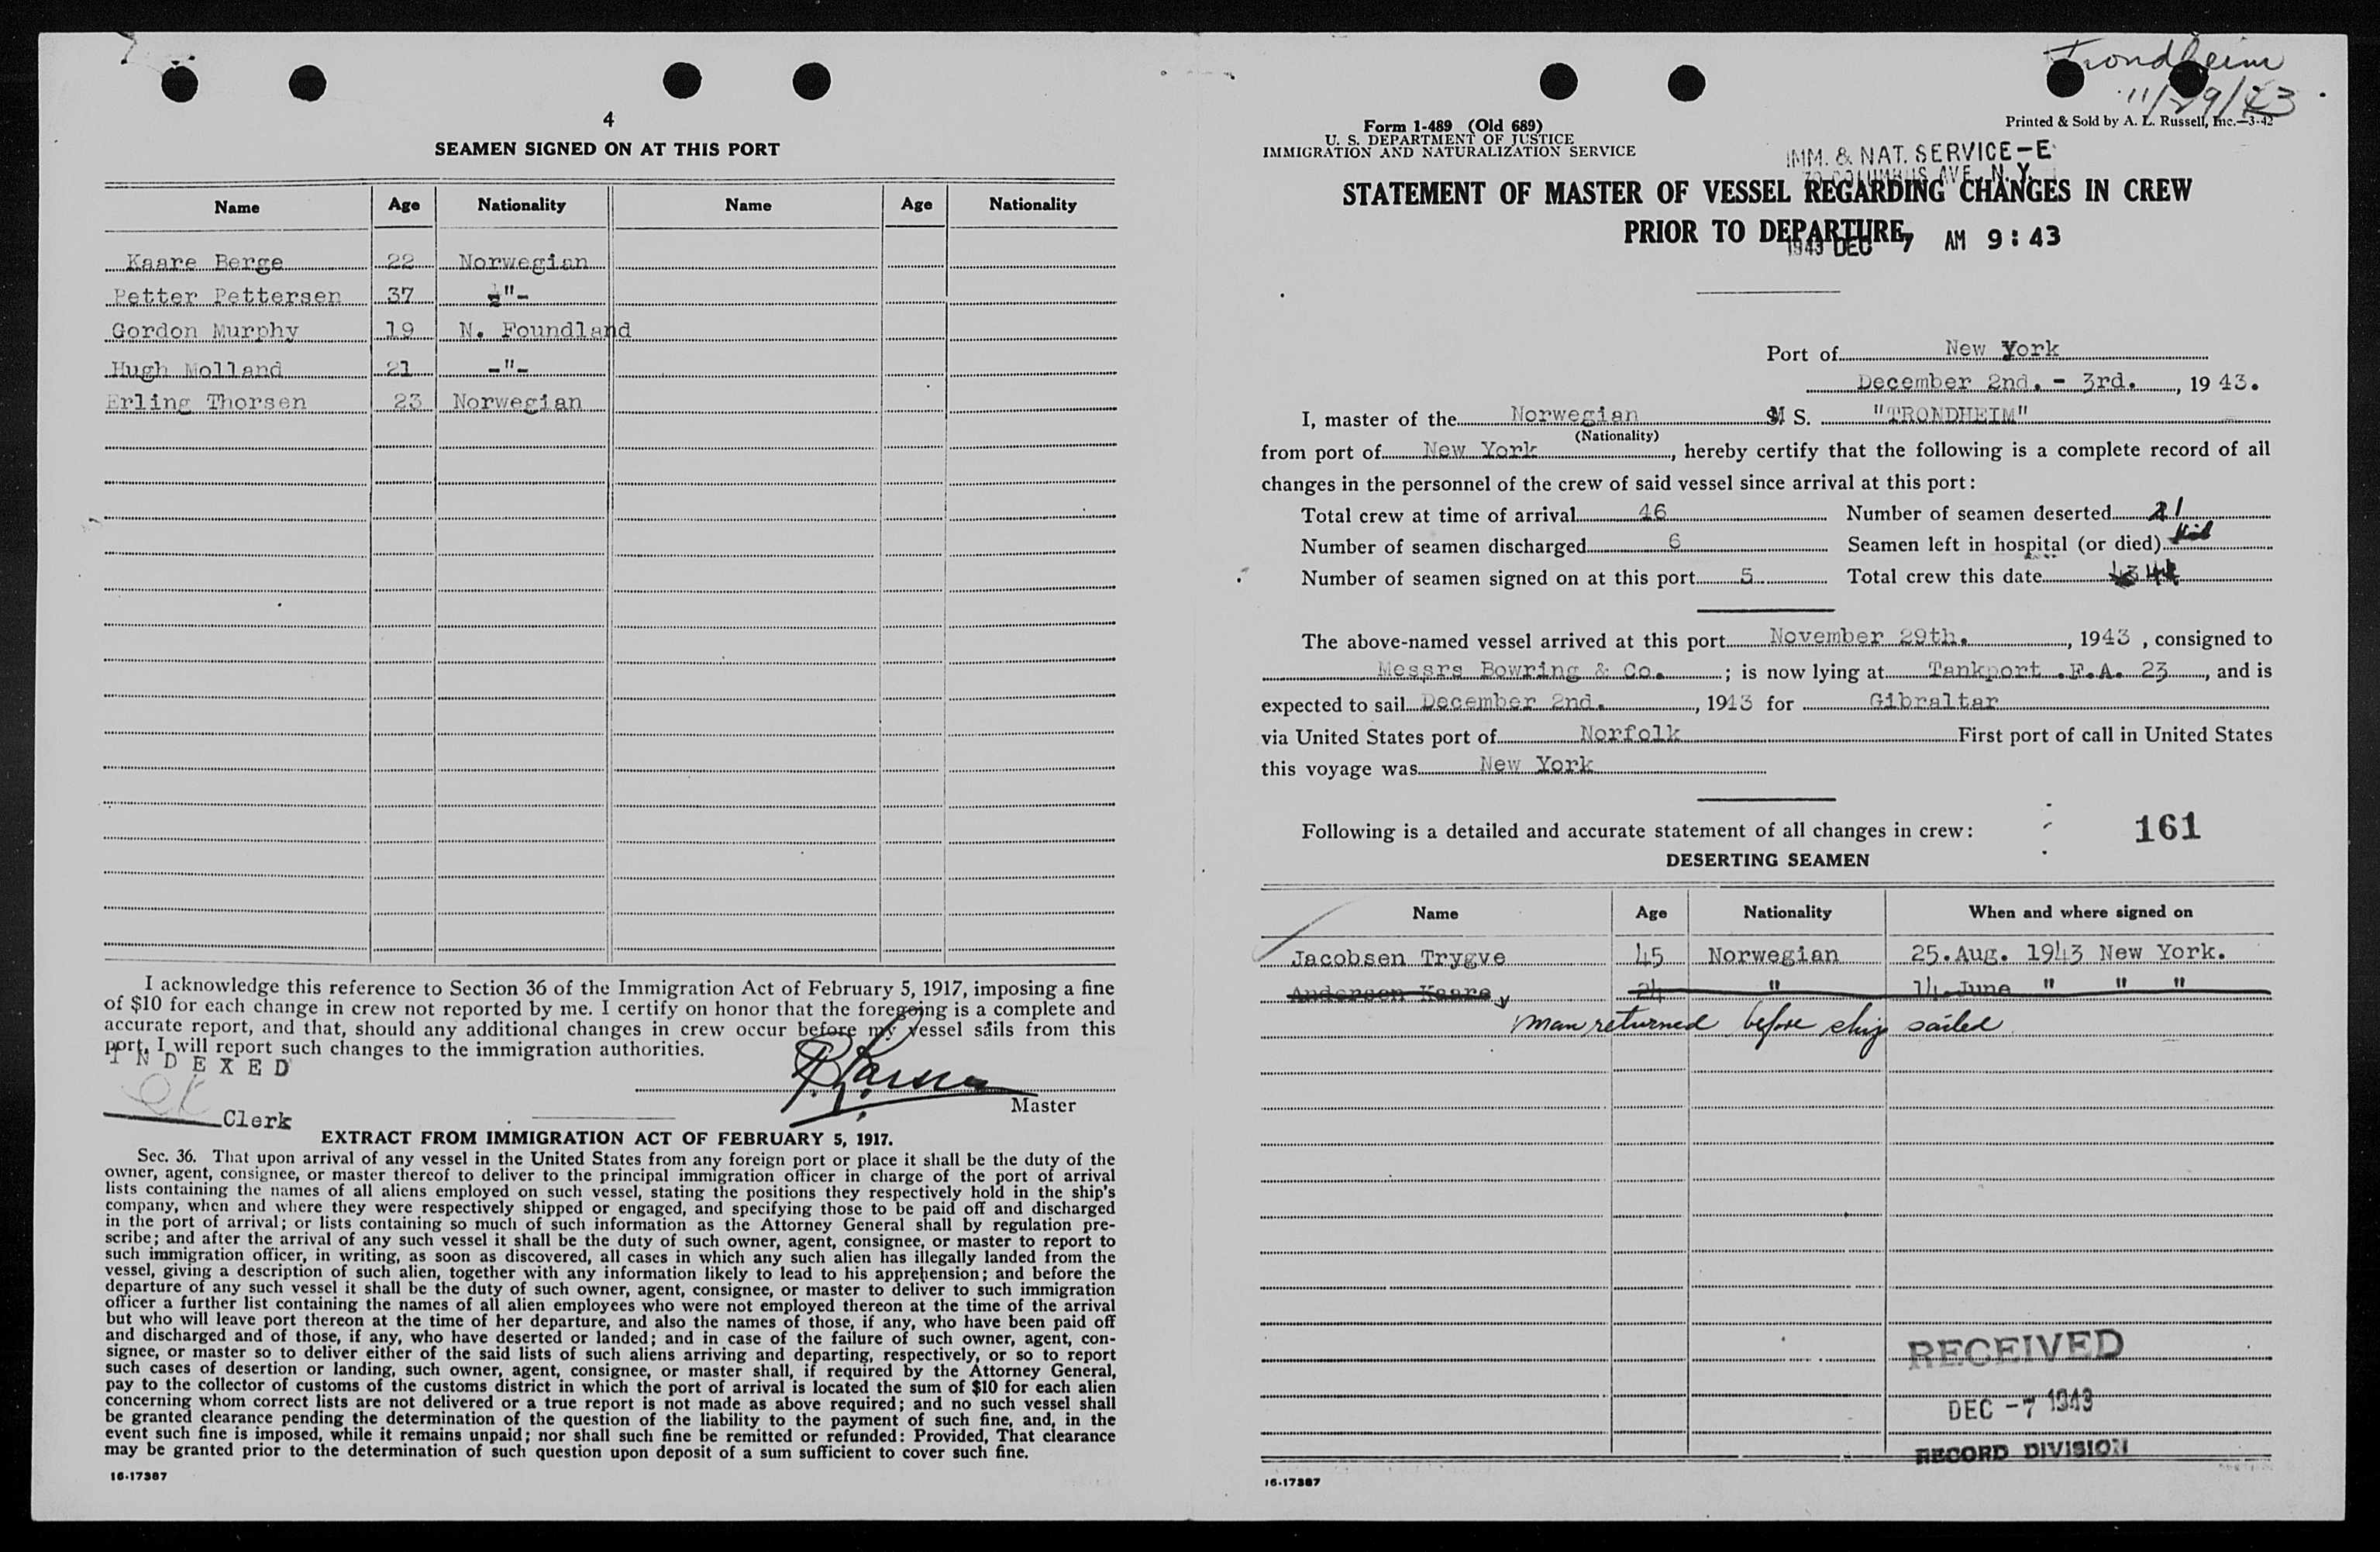 4
SEAMEN SIGNED ON AT THIS PORT
Name Age Nationality Name Age Nationality
Kaare Berge 22 Norwegian
Petter Pettersen 37 -"-
Gordon Murphy 19 N. Foundland
Hugh Molland 21 -"-
Erling Thorsen 23 Norwegian
I acknowledge this reference to Section 36 of the Immigration Act of February 5, 1917, imposing a fine
of $10 for each change in crew not reported by me. I certify on honor that the foregoing is a complete and
accurate report, and that, should any additional changes in crew occur before my vessel sails from this
port, I will report such changes to the immigration authorities.
INDEXED
Clerk
Master
EXTRACT FROM IMMIGRATION ACT OF FEBRUARY 5, 1917.
Sec. 36. That upon arrival of any vessel in the United States from any foreign port or place it shall be the duty of the
owner, agent, consignee, or master thereof to deliver to the principal immigration officer in charge of the port of arrival
lists containing the names of all aliens employed on such vessel, stating the positions they respectively hold in the ship's
company, when and where they were respectively shipped or engaged, and specifying those to be paid off and discharged
in the port of arrival; or lists containing so much of such information as the Attorney General shall by regulation pre-
scribe; and after the arrival of any such vessel it shall be the duty of such owner, agent, consignee, or master to report to
such immigration officer, in writing, as soon as discovered, all cases in which any such alien has illegally landed from the
vessel, giving a description of such alien, together with any information likely to lead to his apprehension; and before the
departure of any such vessel it shall be the duty of such owner, agent, consignee, or master to deliver to such immigration
officer a further list containing the names of all alien employees who were not employed thereon at the time of the arrival
but who will leave port thereon at the time of her departure, and also the names of those, if any, who have been paid off
and discharged and of those, if any, who have deserted or landed; and in case of the failure of such owner, agent, con-
signee, or master so to deliver either of the said lists of such aliens arriving and departing, respectively, or so to report
such cases of desertion or landing, such owner, agent, consignee, or master shall, if required by the Attorney General,
pay to the collector of customs of the customs district in which the port of arrival is located the sum of $10 for each alien
concerning whom correct lists are not delivered or a true report is not made as above required; and no such vessel shall
be granted clearance pending the determination of the question of the liability to the payment of such fine, and, in the
event such fine is imposed, while it remains unpaid; nor shall such fine be remitted or refunded: Provided, That clearance
may be granted prior to the determination of such question upon deposit of a sum sufficient to cover such fine.
16-17387
Trondheim
11/29/43
Form 1-489 (Old 689)
U. S. DEPARTMENT OF JUSTICE
IMMIGRATION AND NATURALIZATION SERVICE
Printed & Sold by A. L. Russell, Inc.—3-42
IMM. & NAT. SERVICE-E
70 COLUMBUS AVE. N.Y.
STATEMENT OF MASTER OF VESSEL REGARDING CHANGES IN CREW
PRIOR TO DEPARTURE
1943 DEC 7 AM 9:43
Port of New York
December 2nd. - 3rd., 1943.
I, master of the Norwegian M S. "TRONDHEIM"
(Nationality)
from port of New York, hereby certify that the following is a complete record of all
changes in the personnel of the crew of said vessel since arrival at this port:
Total crew at time of arrival 46 Number of seamen deserted 1
Number of seamen discharged 6 Seamen left in hospital (or died)
Number of seamen signed on at this port 5 Total crew this date 44
The above-named vessel arrived at this port November 29th., 1943, consigned to
Messrs Bowring & Co.; is now lying at Tankport .F.A. 23, and is
expected to sail December 2nd., 1943 for Gibraltar
via United States port of Norfolk First port of call in United States
this voyage was New York
Following is a detailed and accurate statement of all changes in crew:
161
DESERTING SEAMEN
Name Age Nationality When and where signed on
Jacobsen Trygve 45 Norwegian 25.Aug. 1943 New York.
Andersen Kaare 24 " 14.June " " "
man returned before ship sailed
RECEIVED
DEC -7 1943
RECORD DIVISION
16-17387